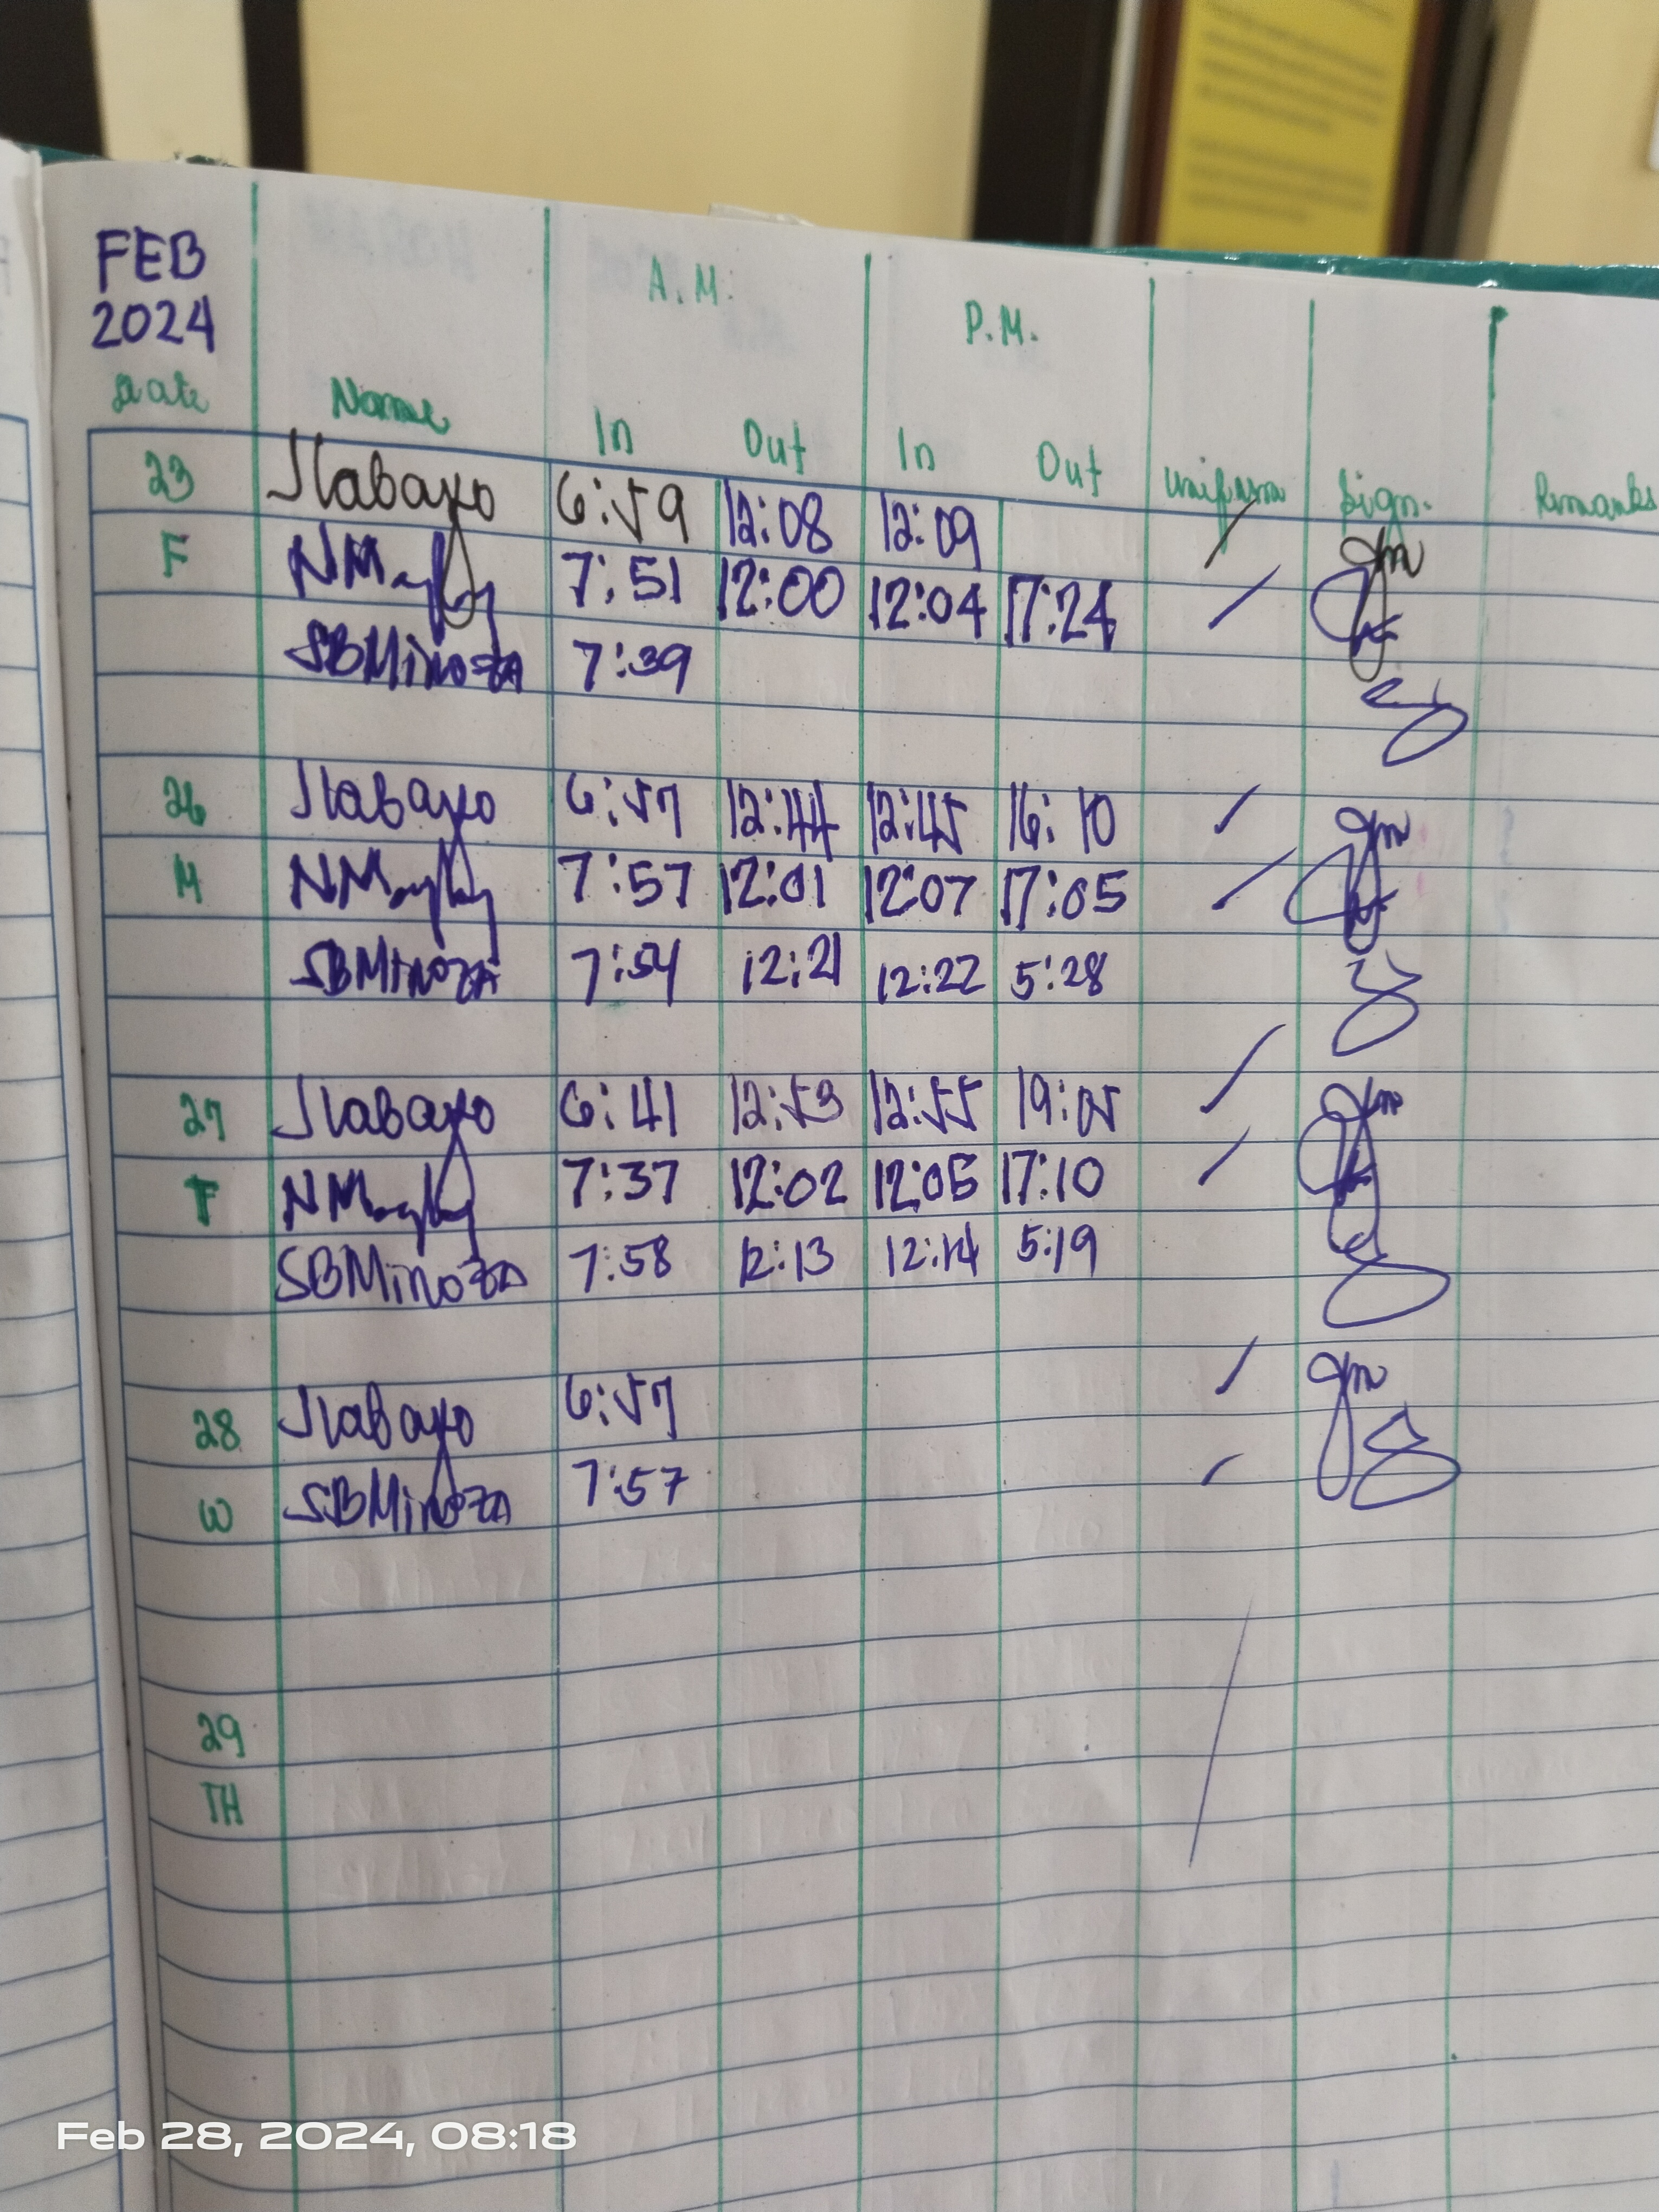 FEB
2024
A.M.
P.M.
Date Name In Out In Out Uniform Sign. Remarks
23 Jlabayo 6:59 12:08 12:09
F 7:51 12:00 12:04 17:24
SBMinoza 7:39
26 Jlabayo 6:57 12:44 12:45 16:10
M 7:57 12:01 12:07 17:05
SBMinoza 7:54 12:21 12:22 5:28
27 Jlabayo 6:41 12:53 12:55 19:05
T 7:37 12:02 12:05 17:10
SBMinoza 7:58 12:13 12:14 5:19
28 Jlabayo 6:57
W SBMinoza 7:57
29
TH
Feb 28, 2024, 08:18